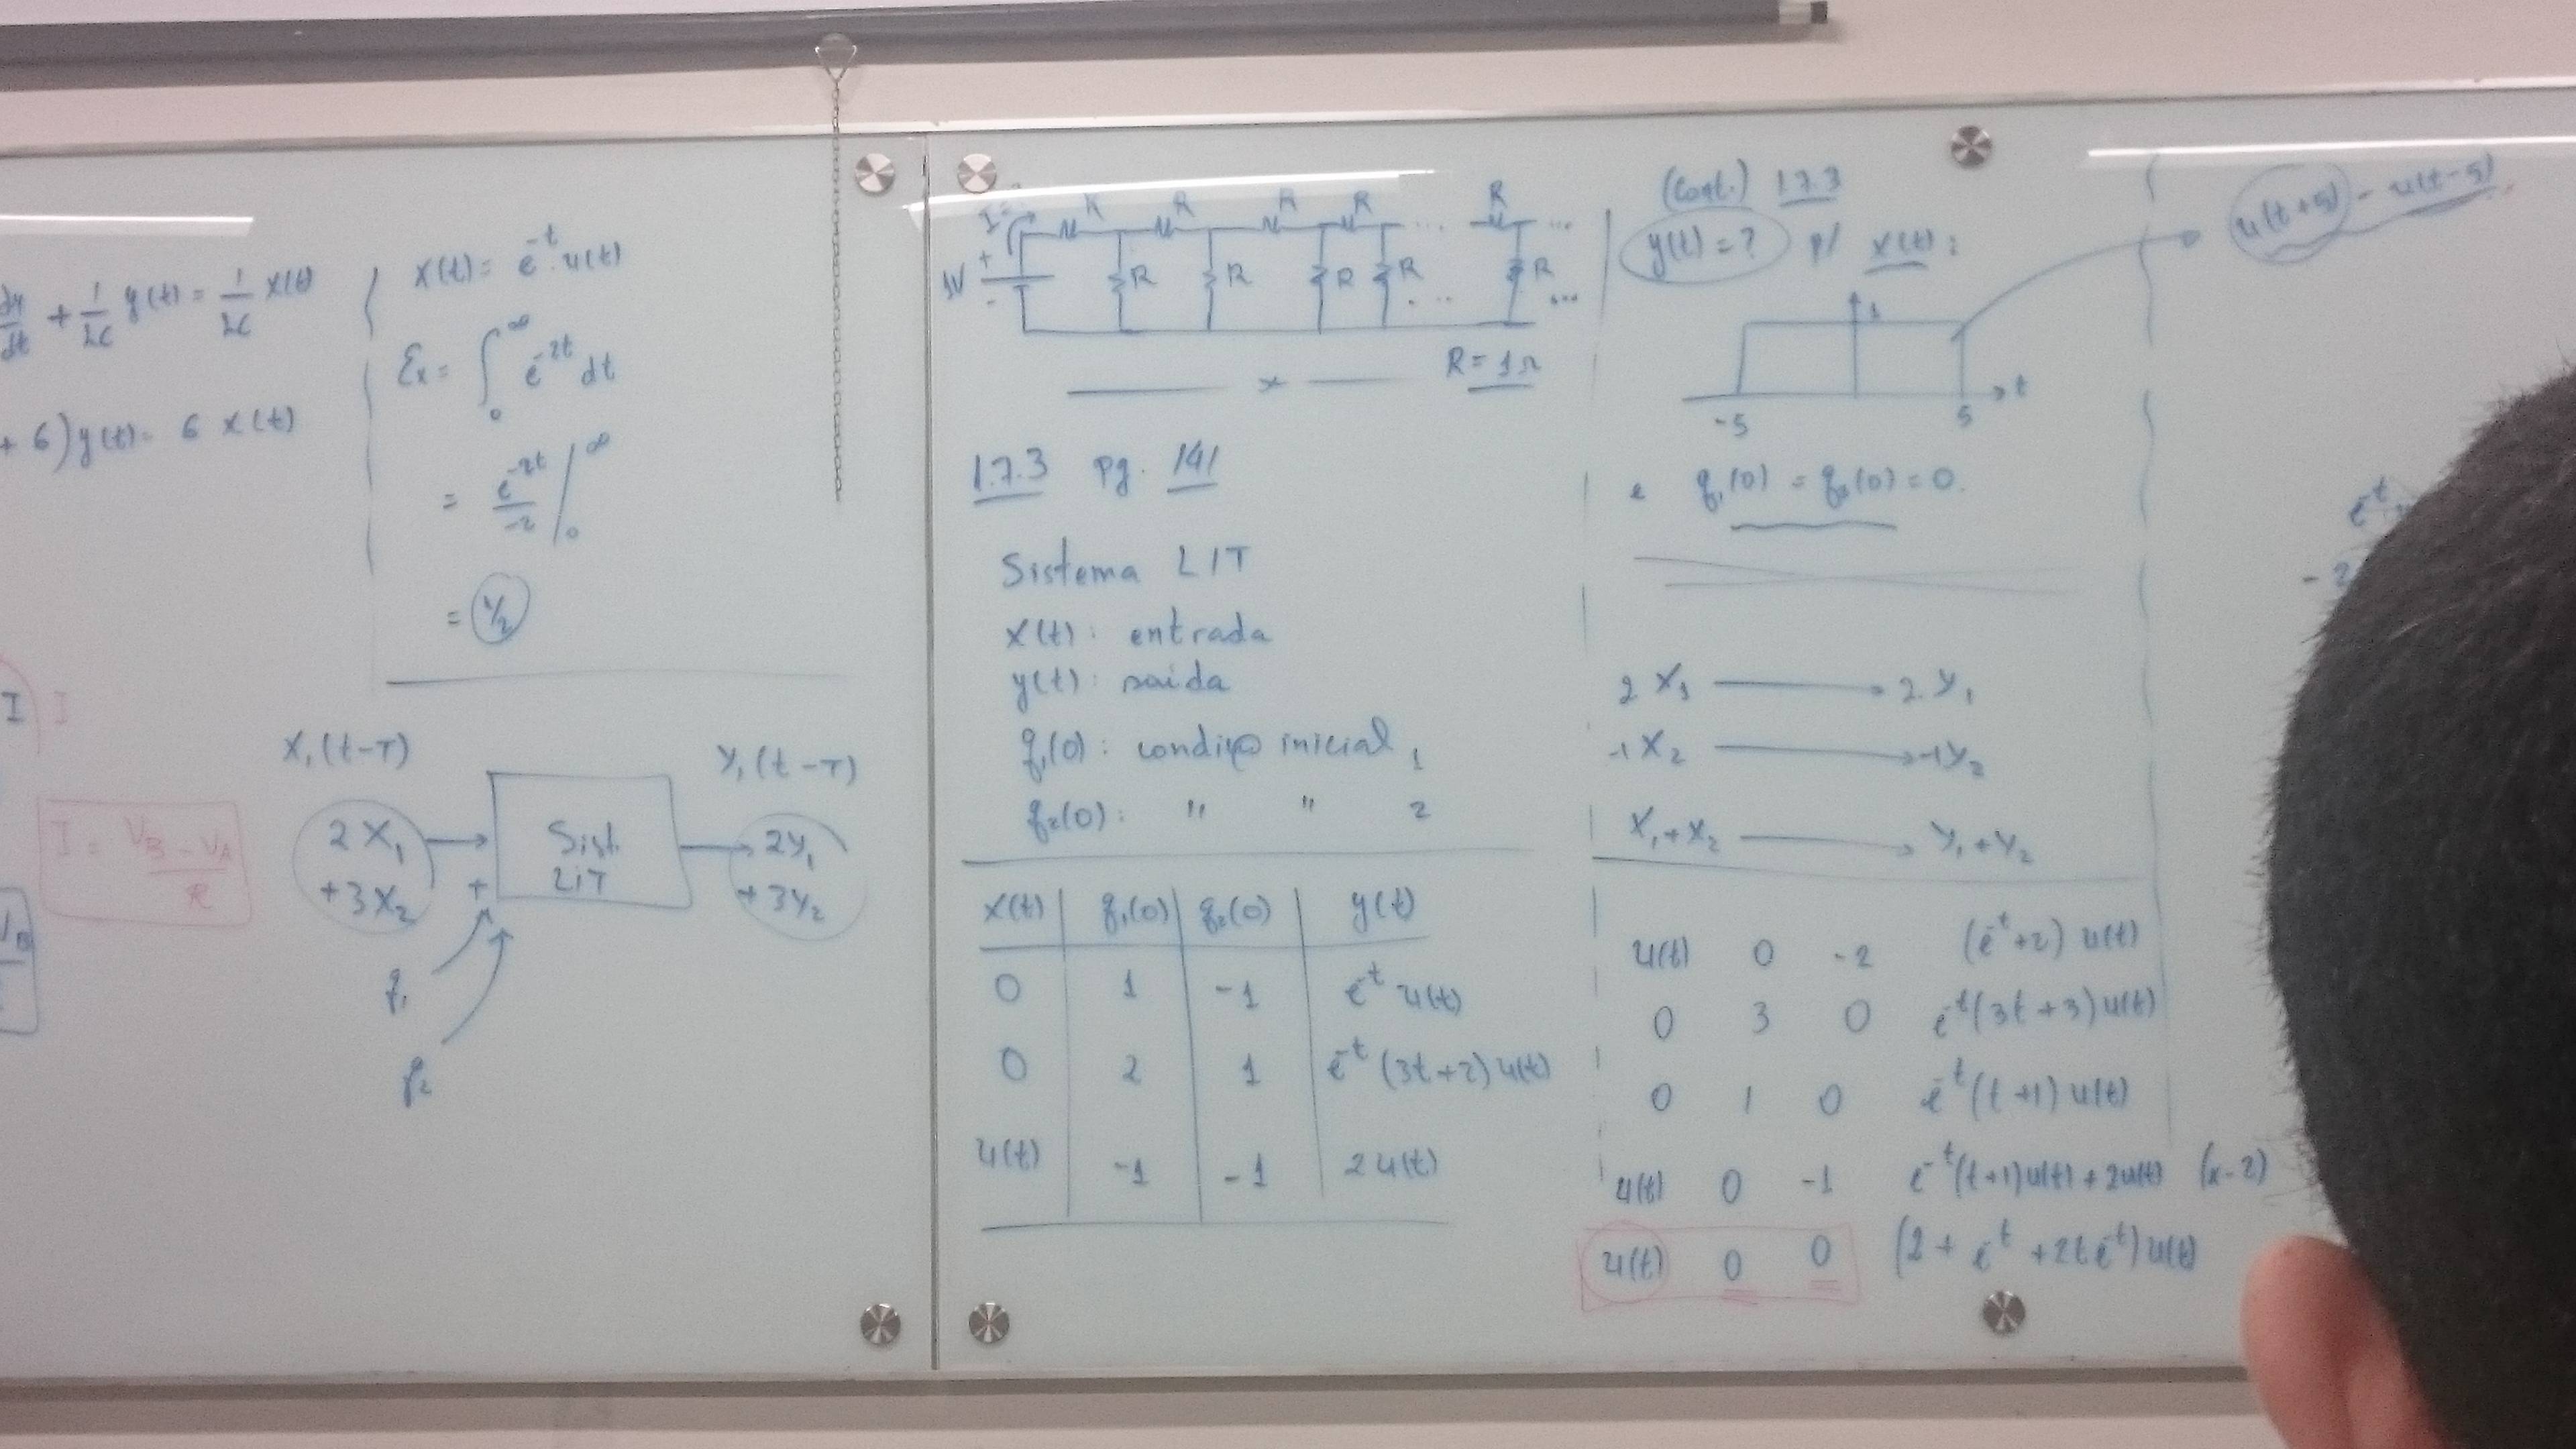 dy/dt + 1/LC y(t) = 1/LC x(t)
+ 6) y(t) = 6 x(t)
I I
I = (VB - VA)/R
VB
x(t) = e^-t . u(t)
Ex = ∫_0^∞ e^-2t dt
= e^-2t/-2 |_0^∞
= 1/2
X1(t-T) Y1(t-T)
2X1 + 3X2
Sist. LIT
2Y1 + 3Y2
+
q1
q2
I = ?
R R R R ... R ...
1V + -
R R R R ... R ...
R = 1Ω
x
1.7.3 pg. 141
Sistema LIT
x(t): entrada
y(t): saída
q1(0): condição inicial 1
q2(0): " " 2
x(t) | q1(0) | q2(0) | y(t)
0 | 1 | -1 | e^-t u(t)
0 | 2 | 1 | e^-t (3t+2) u(t)
u(t) | -1 | -1 | 2 u(t)
(Cont.) 1.7.3
y(t) = ? p/ x(t):
1
-5 5 t
e q1(0) = q2(0) = 0.
2 X1 → 2 Y1
-1 X2 → -1 Y2
X1 + X2 → Y1 + Y2
u(t) 0 -2 (e^-t + 2) u(t)
0 3 0 e^-t (3t + 3) u(t)
0 1 0 e^-t (t + 1) u(t)
u(t) 0 -1 e^-t (t+1) u(t) + 2u(t) (x-2)
u(t) 0 0 (2 + e^-t + 2t e^-t) u(t)
u(t+5) - u(t-5)
e^-t
- 2